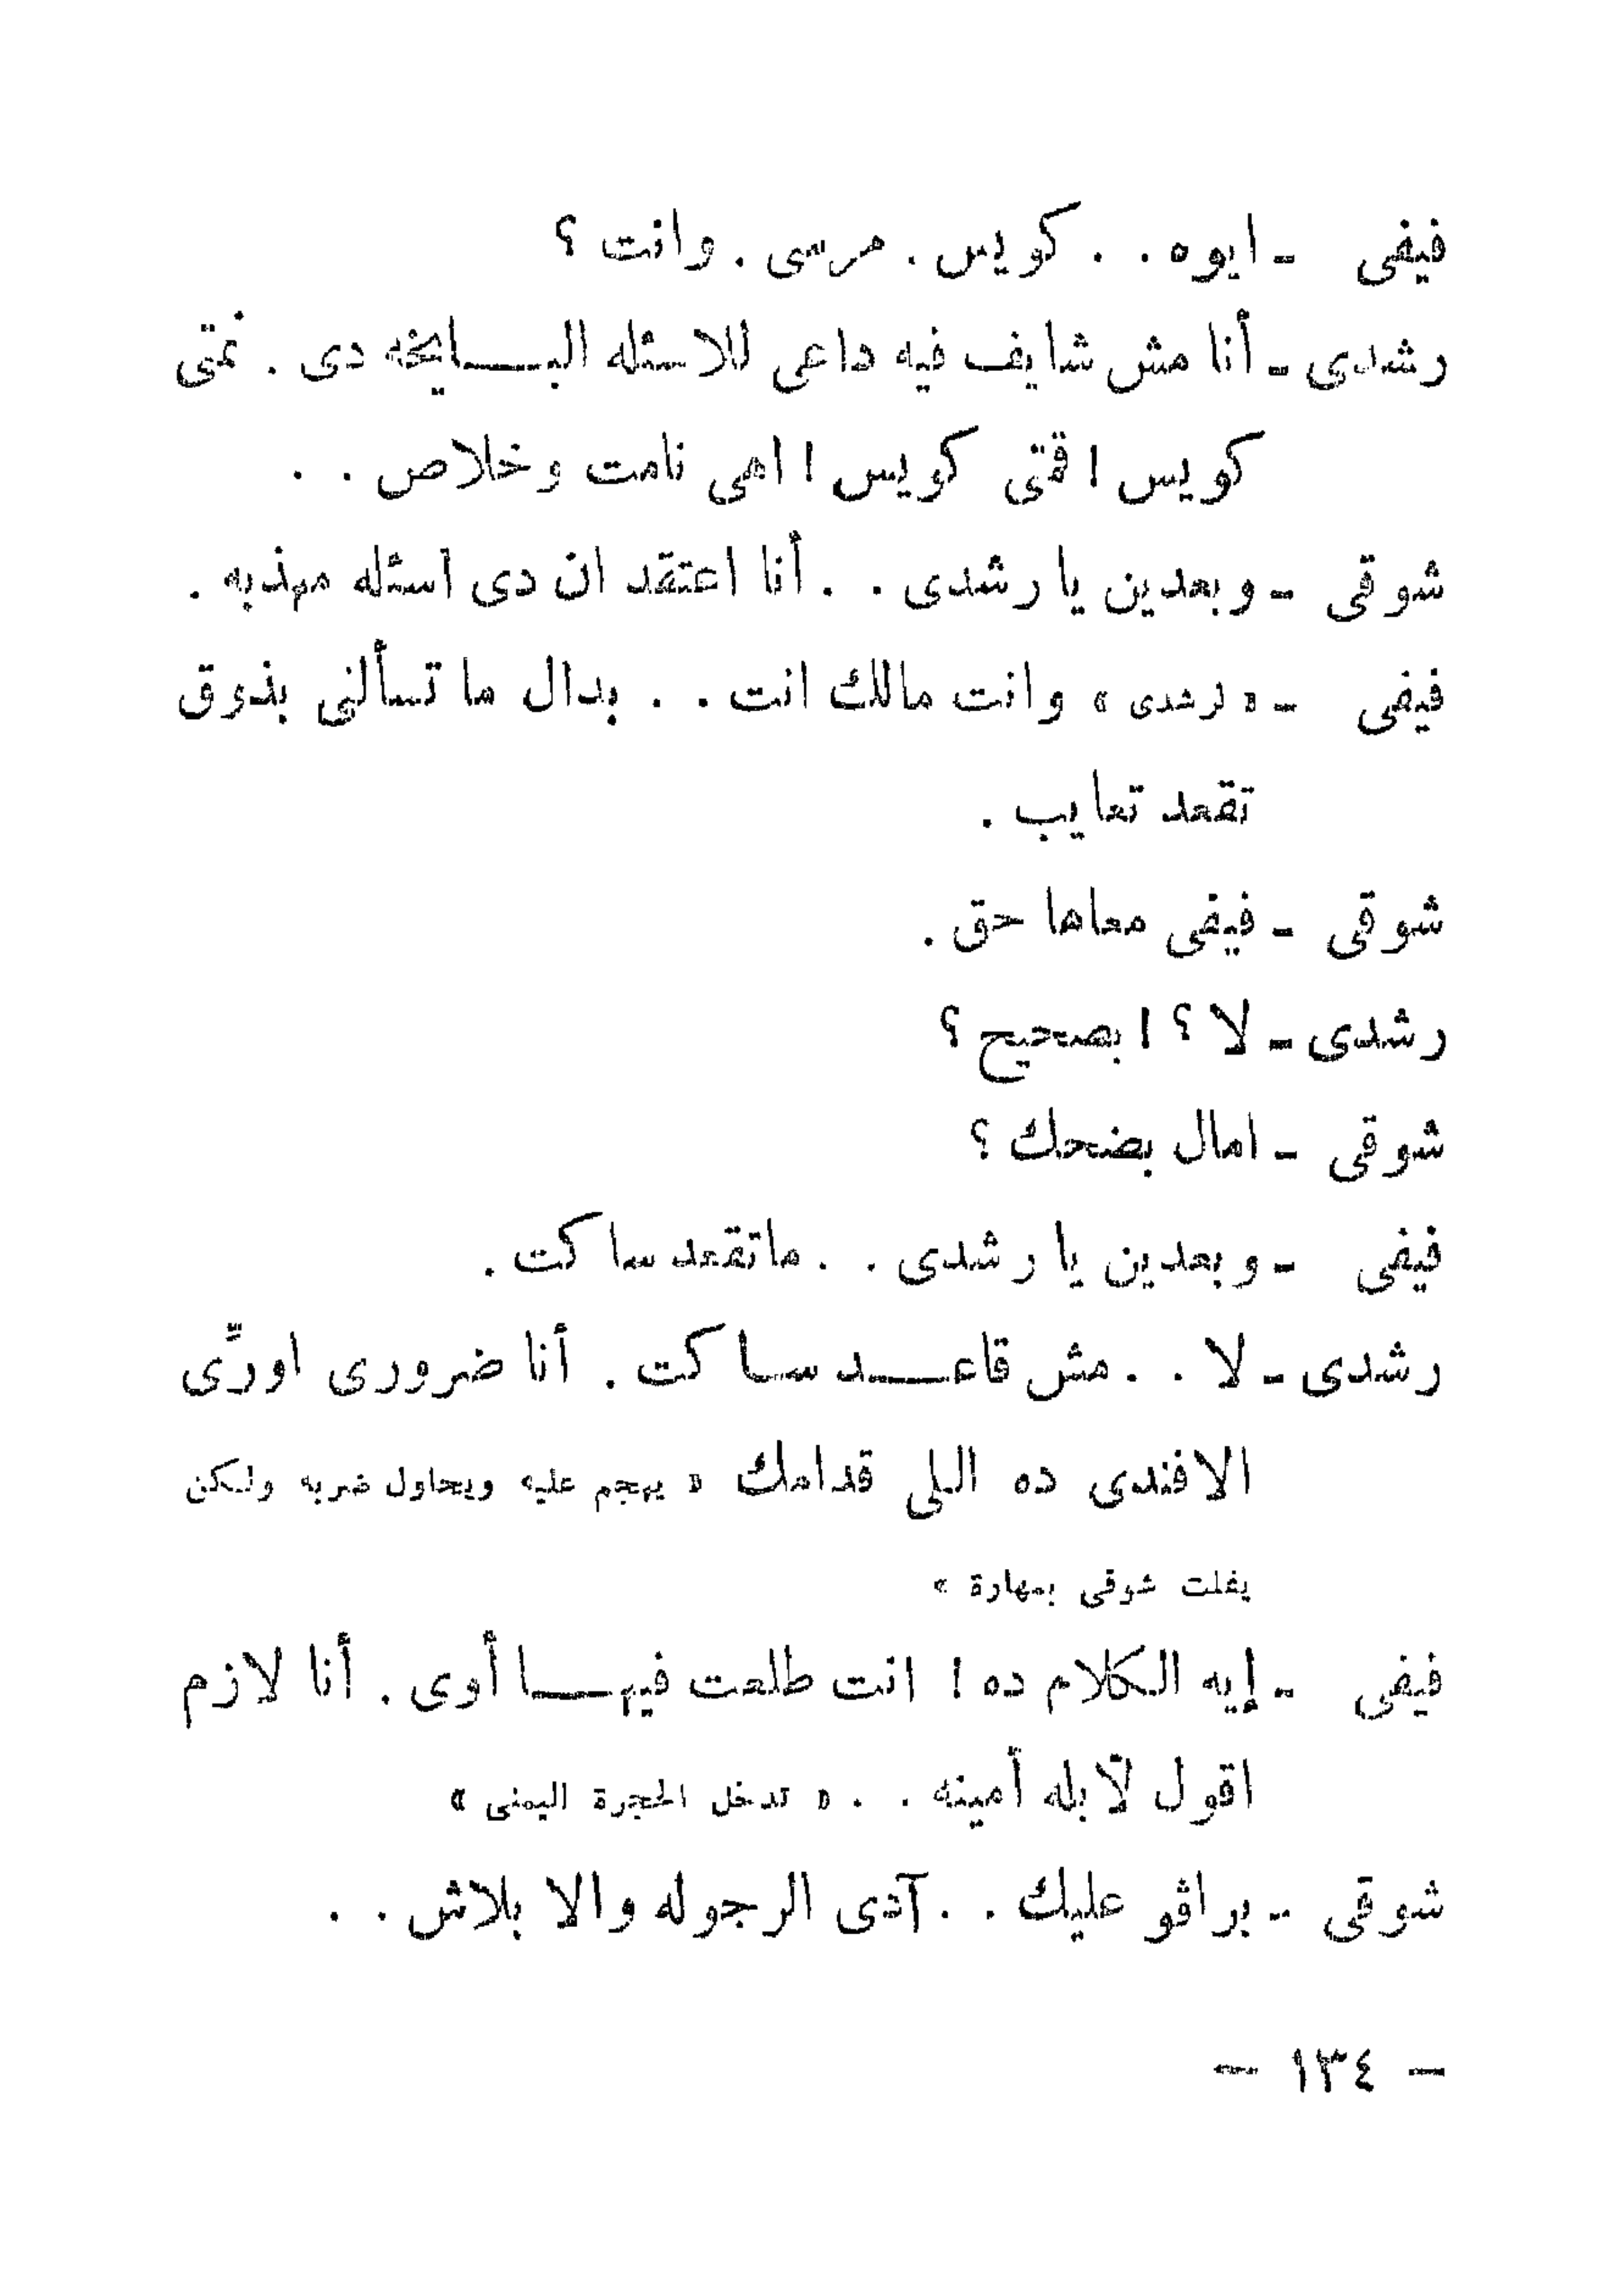 فيفى - ايوه . . كويس . مرسى . وانت ؟
رشدى - أنا مش شايف فيه داعى للاسئله البـايخه دى . نمتى
كويس ! قمتى كويس ! اهى نامت وخلاص . .
شوقى - وبعدين يا رشدى . . أنا اعتقد ان دى اسئله مهذبه .
فيفى - « لرشدى » وانت مالك انت . . بدال ما تسألنى بذوق
تقعد تعايب .
شوقى - فيفى معاها حق .
رشدى - لا ؟ ! بصحيح ؟
شوقى - امال بضحك ؟
فيفى - وبعدين يا رشدى . . ماتقعد ساكت .
رشدى - لا . . مش قاعـد سـاكت . أنا ضرورى اورِّى
الافندى ده اللى قدامك « يهجم عليه ويحاول ضربه ولكن
يفلت شوقى بمهارة »
فيفى - إيه الكلام ده ! انت طلعت فيهـا أوى . أنا لازم
اقول لآبله أمينه . . « تدخل الحجرة اليمنى »
شوقى - براڤو عليك . . آدى الرجوله والا بلاش . .
— ١٣٤ —